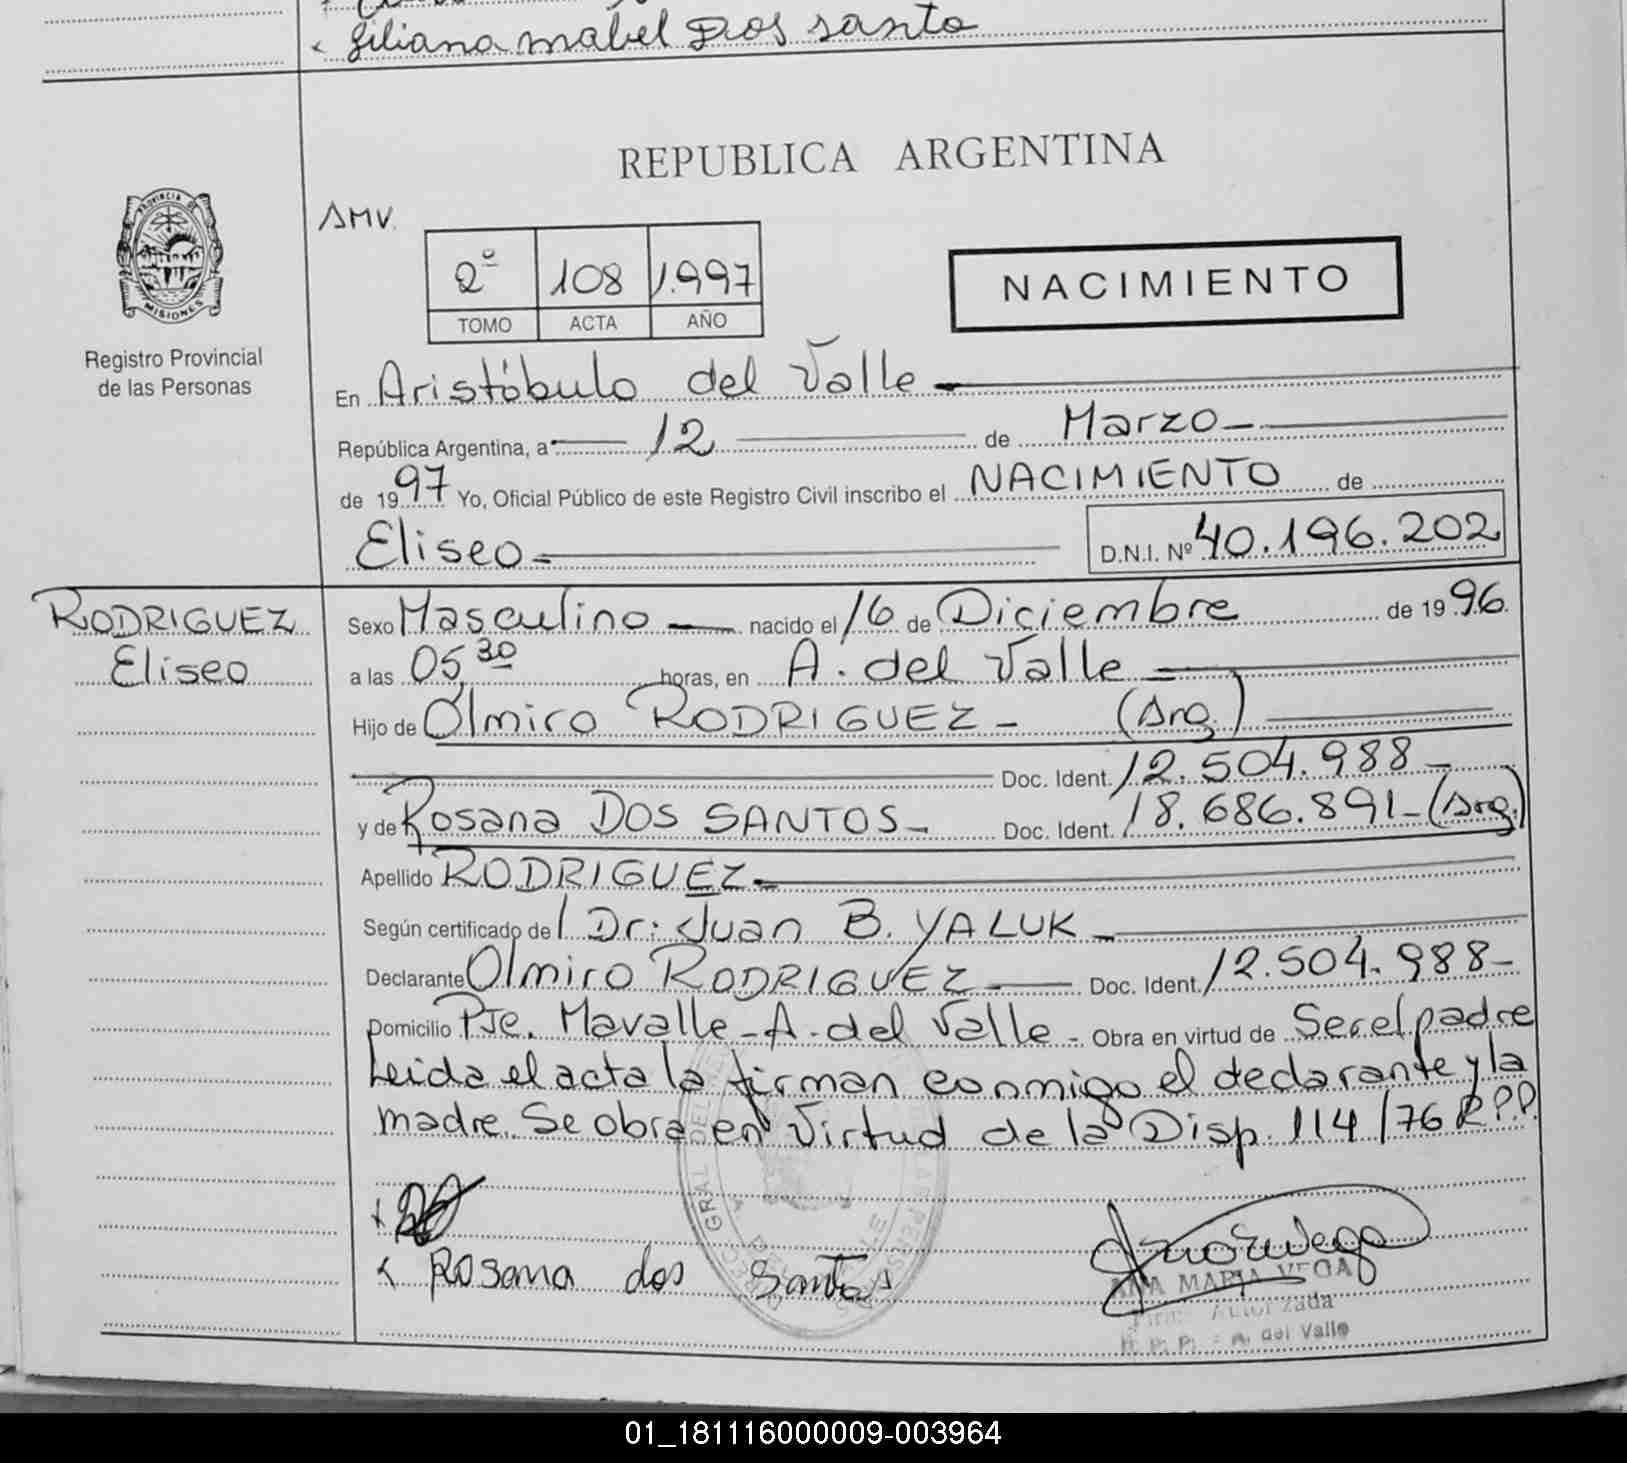 Liliana mabel Dos santo
REPUBLICA ARGENTINA
AMV.
2º 108 1.997
TOMO ACTA AÑO
NACIMIENTO
PROVINCIA DE
MISIONES
Registro Provincial
de las Personas
En Aristóbulo del Valle
República Argentina, a 12 de Marzo
de 1997 Yo, Oficial Público de este Registro Civil inscribo el NACIMIENTO de
Eliseo D.N.I. Nº 40.196.202
RODRIGUEZ
Eliseo
Sexo Masculino nacido el 16 de Diciembre de 1996.
a las 05,30 horas, en A. del Valle
Hijo de Olmiro RODRIGUEZ - (Arg.)
Doc. Ident. 12.504.988-
y de Rosana DOS SANTOS- Doc. Ident. 18.686.891-(Arg.)
Apellido RODRIGUEZ
Según certificado del Dr: Juan B. YALUK
Declarante Olmiro RODRIGUEZ Doc. Ident. 12.504.988-
Domicilio Pje. Mavalle-A.del Valle- Obra en virtud de Ser el padre
Leida el acta la firman conmigo el declarante y la
madre. Se obra en Virtud de la Disp. 114/76 R.P.P.
x Rosana dos Santos
ANA MARIA VEGA
Firma Autorizada
R. P. P. - A. del Valle
01_181116000009-003964